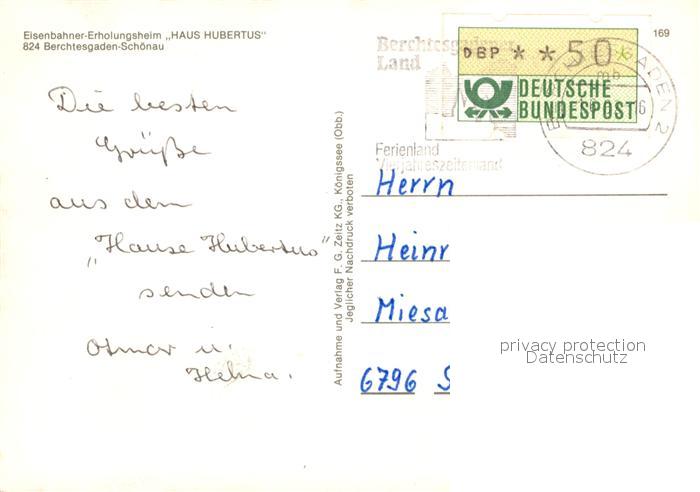 Eisenbahner-Erholungsheim „HAUS HUBERTUS"
824 Berchtesgaden-Schönau
169
Berchtesgadener
Land
DBP * * 50*
DEUTSCHE
BUNDESPOST
GADEN 2
mb
6
824
Ferienland
Vierjahreszeitenland
Die besten
Grüße
aus dem
„Hause Hubertus"
senden
Otmar u.
Helma.
Aufnahme und Verlag F. G. Zeitz KG., Königssee (Obb.)
Jeglicher Nachdruck verboten
Herrn
Heinr
Miesa
6796 S
privacy protection
Datenschutz